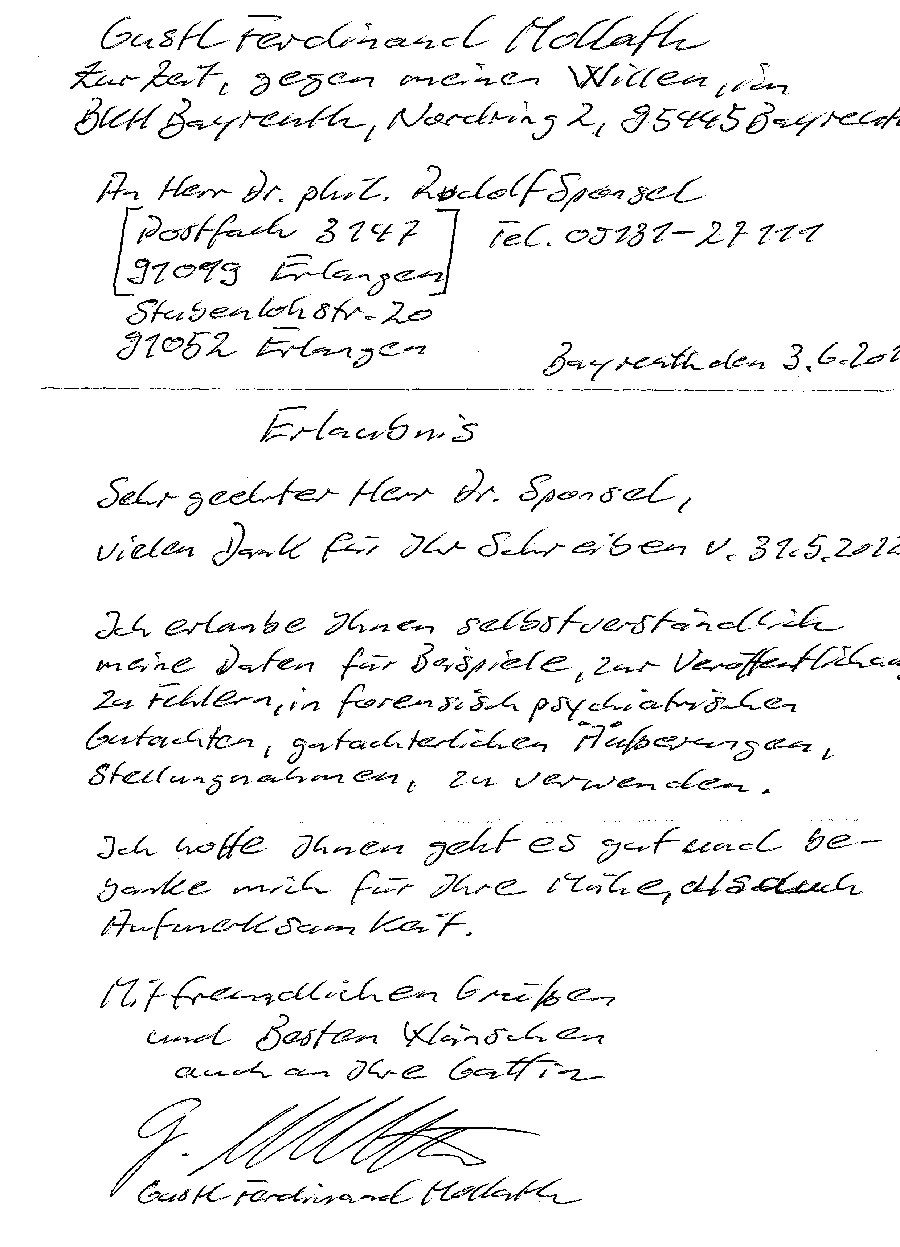 Gustl Ferdinand Mollath
zur Zeit, gegen meinen Willen, im
BKH Bayreuth, Nordring 2, 95445 Bayreuth
An Herr Dr. phil. Rudolf Sponsel
[Postfach 3147] Tel. 09131-27111
[91049 Erlangen]
Stubenlohstr. 20
91052 Erlangen
Bayreuth den 3.6.201
Erlaubnis
Sehr geehrter Herr Dr. Sponsel,
vielen Dank für Ihr Schreiben v. 31.5.2012
Ich erlaube Ihnen selbstverständlich
meine Daten für Beispiele, zur Veröffentlichung
zu Fehlern, in forensisch psychiatrischen
Gutachten, gutachterlichen Äußerungen,
Stellungnahmen, zu verwenden.
Ich hoffe Ihnen geht es gut und be-
danke mich für Ihre Mühe, als auch
Aufmerksamkeit.
Mit freundlichen Grüßen
und Besten Wünschen
auch an Ihre Gattin
G. Mollath
Gustl Ferdinand Mollath